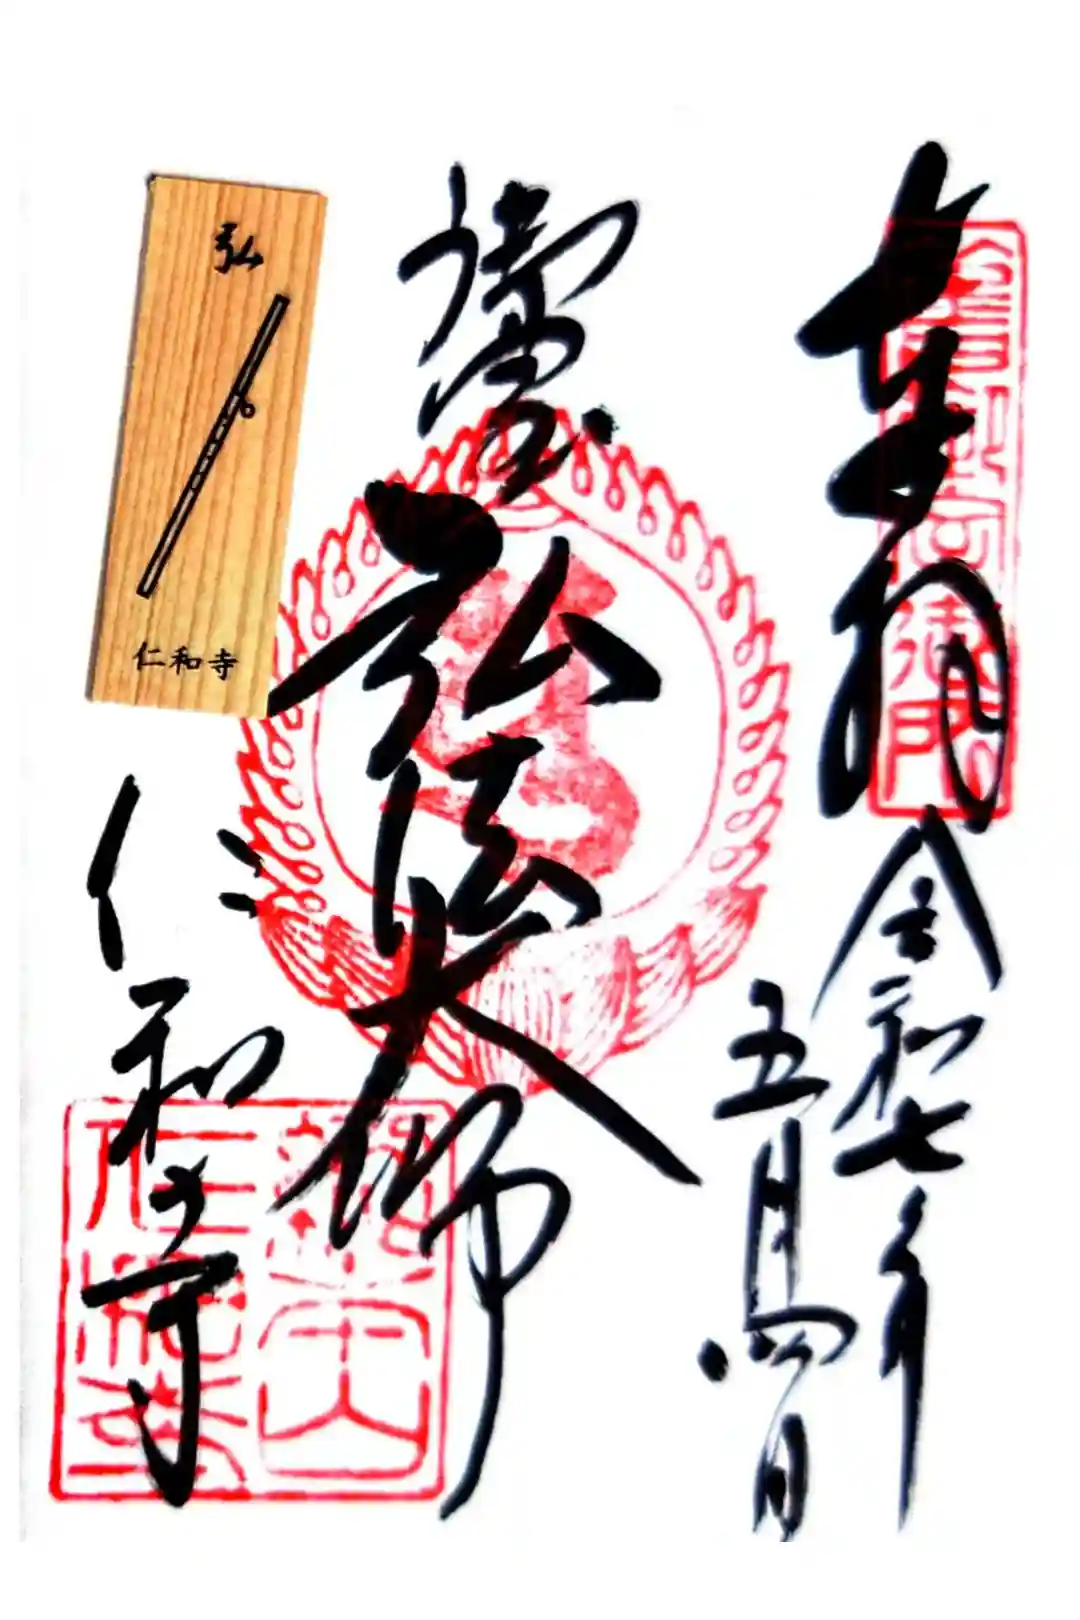 奉拝
令和七年
五月四日
弘法大師
仁和寺
弘
仁和寺